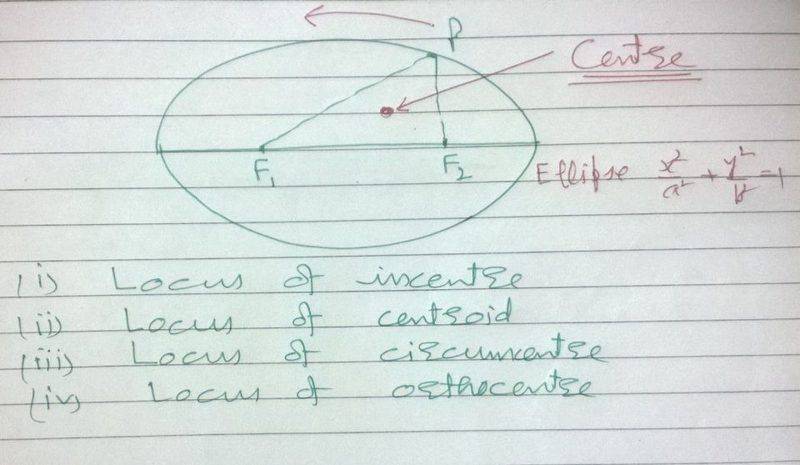 P
Centre
F₁ F₂ Ellipse x²/a² + y²/b² = 1
(i) Locus of incentre
(ii) Locus of centroid
(iii) Locus of circumcentre
(iv) Locus of orthocentre